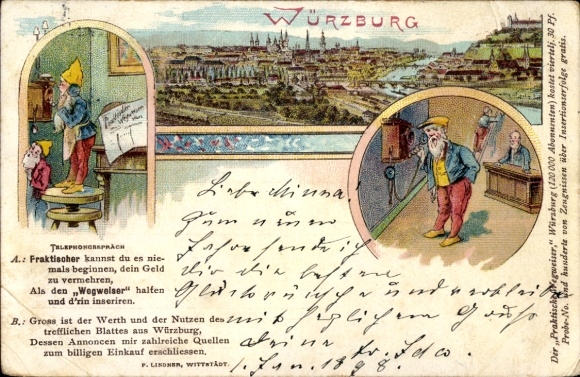 WÜRZBURG
Praktischer
Wegweiser
TELEPHONGESPRÄCH
A.: Praktischer kannst du es nie-
mals beginnen, dein Geld
zu vermehren,
Als den „Wegweiser“ halfen
und d'rin inseriren.
B.: Gross ist der Werth und der Nutzen des
trefflichen Blattes aus Würzburg,
Dessen Annoncen mir zahlreiche Quellen
zum billigen Einkauf erschliessen.
P. LINDNER, WITTSTÄDT.
Liebe Minna!
Zum neuen
Jahre sende ich
dir die besten
Glückwünsche und verbleibe
mit herzlichem Gruß
deine
1. Jan. 1898.
Der „Praktische Wegweiser“, Würzburg (120000 Abonnenten) kostet viertelj. 30 Pf.
Probe-No. und hunderte von Zeugnissen über Insertionserfolge gratis.